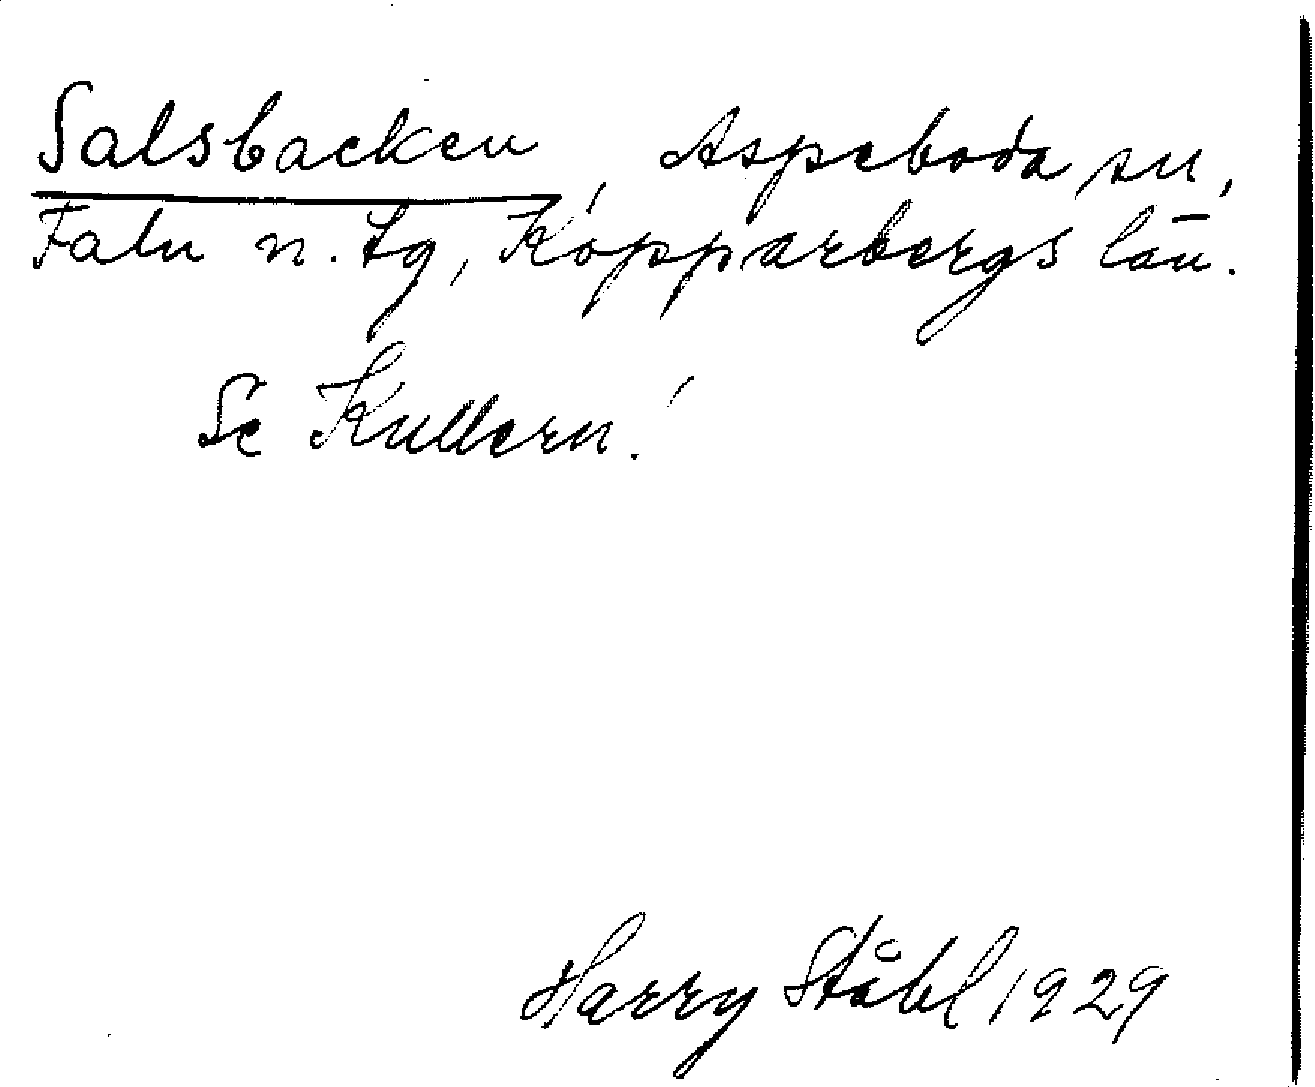 Salsbacken, Aspeboda sn,
Falu n. tg, Kopparbergs län.
Se Kullern!
Harry Ståhl 1929